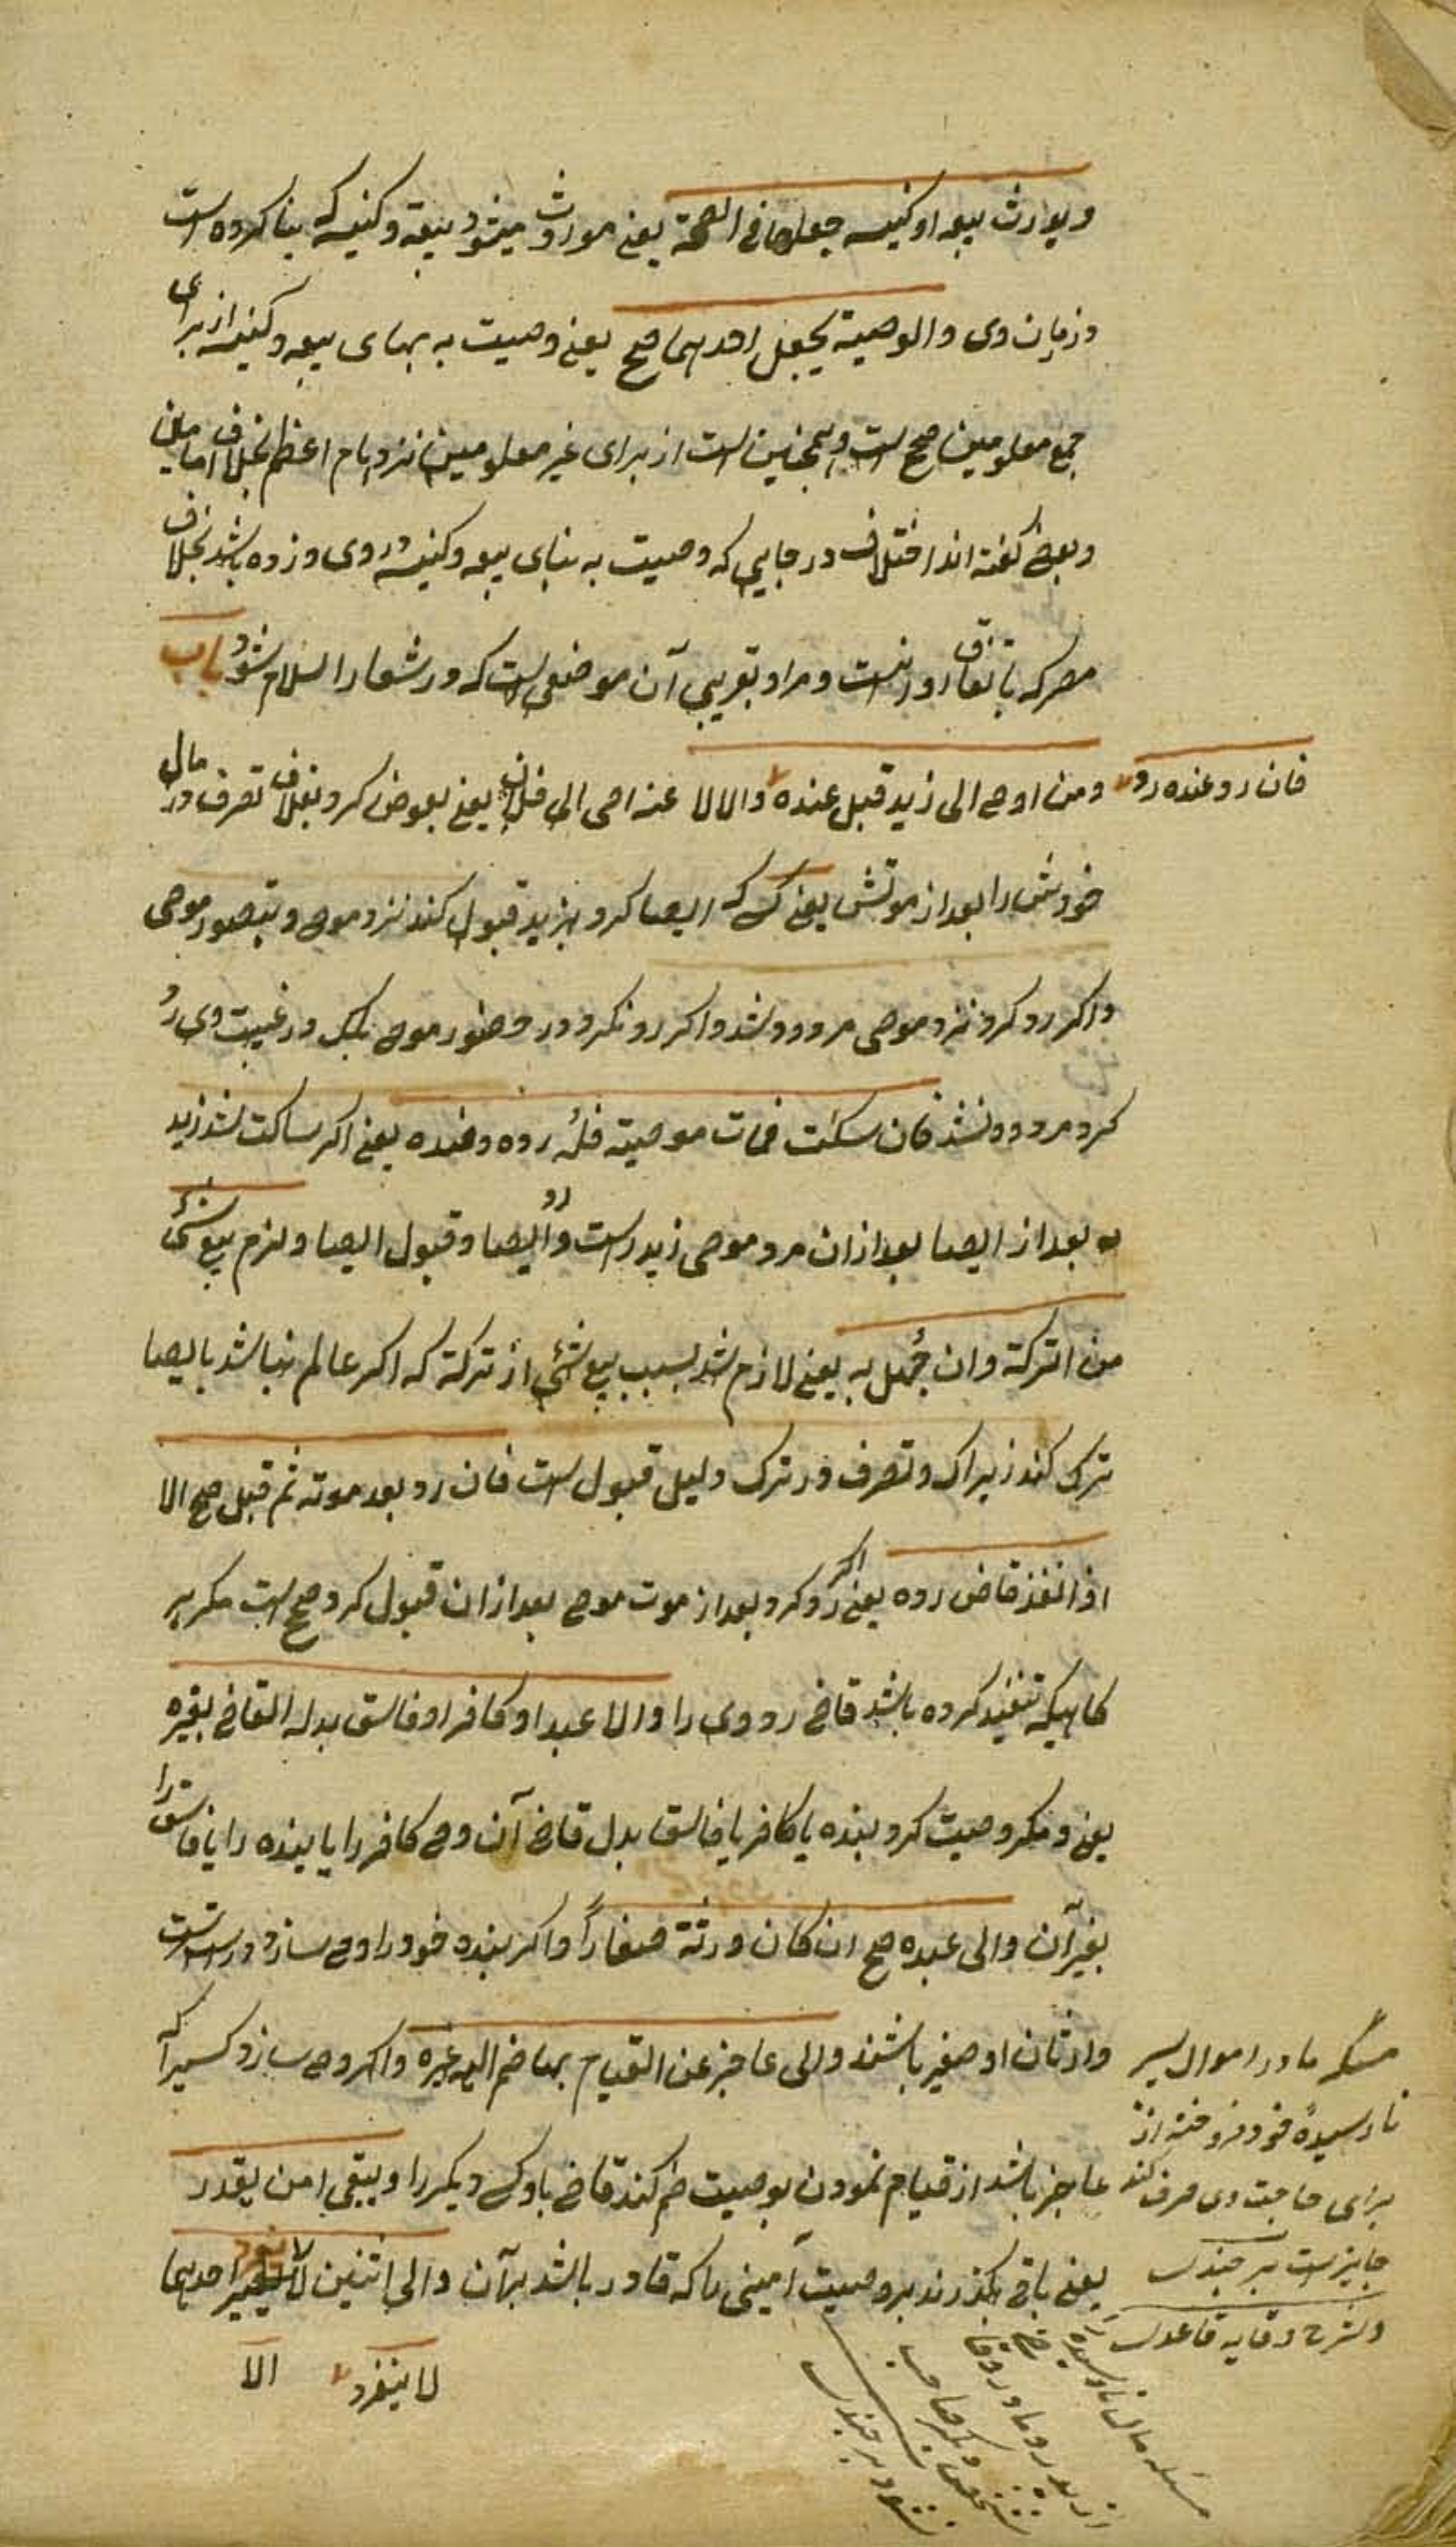 ویورث بیعه او کنیسه جعلها فی الصحة یعنی موروث میشود بیعه و کنیسه که بنا کرده است
و زمان وی والوصیة یجعل احدیهما صح یعنی وصیت به بهای بیعه و کنیسه از برای
جمع معلومین صحیح است و همچنین است از برای غیر معلومین نزد امام اعظم بخلاف امامین
و بعضی گفته اند اختلاف در جایی که وصیت به بنای بیعه و کنیسه در وی و ز ده باشد بخلاف
مصر که باتفاق روا نیست و مراد بقریه آن موضعی است که در شعار اسلام نشود باب
ومن اوصی الی زید قبل عنده والا لا عنه اصی الی فلان یعنی بعوض کرد بفلان تصرف در مال
فان رد عنده رد
خودش را بعد از موتش یعنی کسی که ایصا کرد بزید قبول کند نزد موصی و بحضور موصی
و اگر رد کرد نزد موصی مردود شد و اگر رد نکرد در حضور موصی بلکه در غیبت وی رد
کرد مردود نشد فان سکت فمات موصیه فله رده وضده یعنی اگر ساکت شد زید
به بعد از ایصا بعد از ان مرد موصی زید راست رد ایصا و قبول ایصا ولزم بیع شئ
من الترکة وان جهل به یعنی لازم شد بسبب بیع شئی از ترکة که اگر عالم نباشد بایصا
ترک کند زیرا که تصرف در ترکه دلیل قبول است فان رد بعد موته ثم قبل صح الا
اذا انفذ قاض رده یعنی اگر رد کرد بعد از موت موصی بعد از ان قبول کرد صحیح است مگر بر
کاهیکه تنفیذ کرده باشد قاضی رد وی را والی عبد او کافر او فاسق بدله القاضی بغیره
یعنی و مکر وصیت کرد بنده یا کافر یا فاسق بدل قاضی آن وصی کافر را یا بنده را یا فاسق را
بغیر آن والی عبده صح ان کان ورثته صغاراً و اگر بنده خود را وصی سازد درست است
وارثان او صغیر باشند والی عاجز عن القیام بها ضم الیه غیره و اگر وصی سازد کسیرا که
عاجز باشد از قیام نمودن بوصیت ضم کند قاضی باو کسی دیگر را ویبقی امین یقدر
یعنی باقی بگذرند بر وصیت امینی را که قادر باشد بر آن والی اثنین لا ینفرد احدیهما
لا ینفرد الا
مسئله مادر اموال پسر
نارسیدۀ خود فروخته از
برای حاجت وی صرف کند
جایز است برجندی
و شرح وقایه